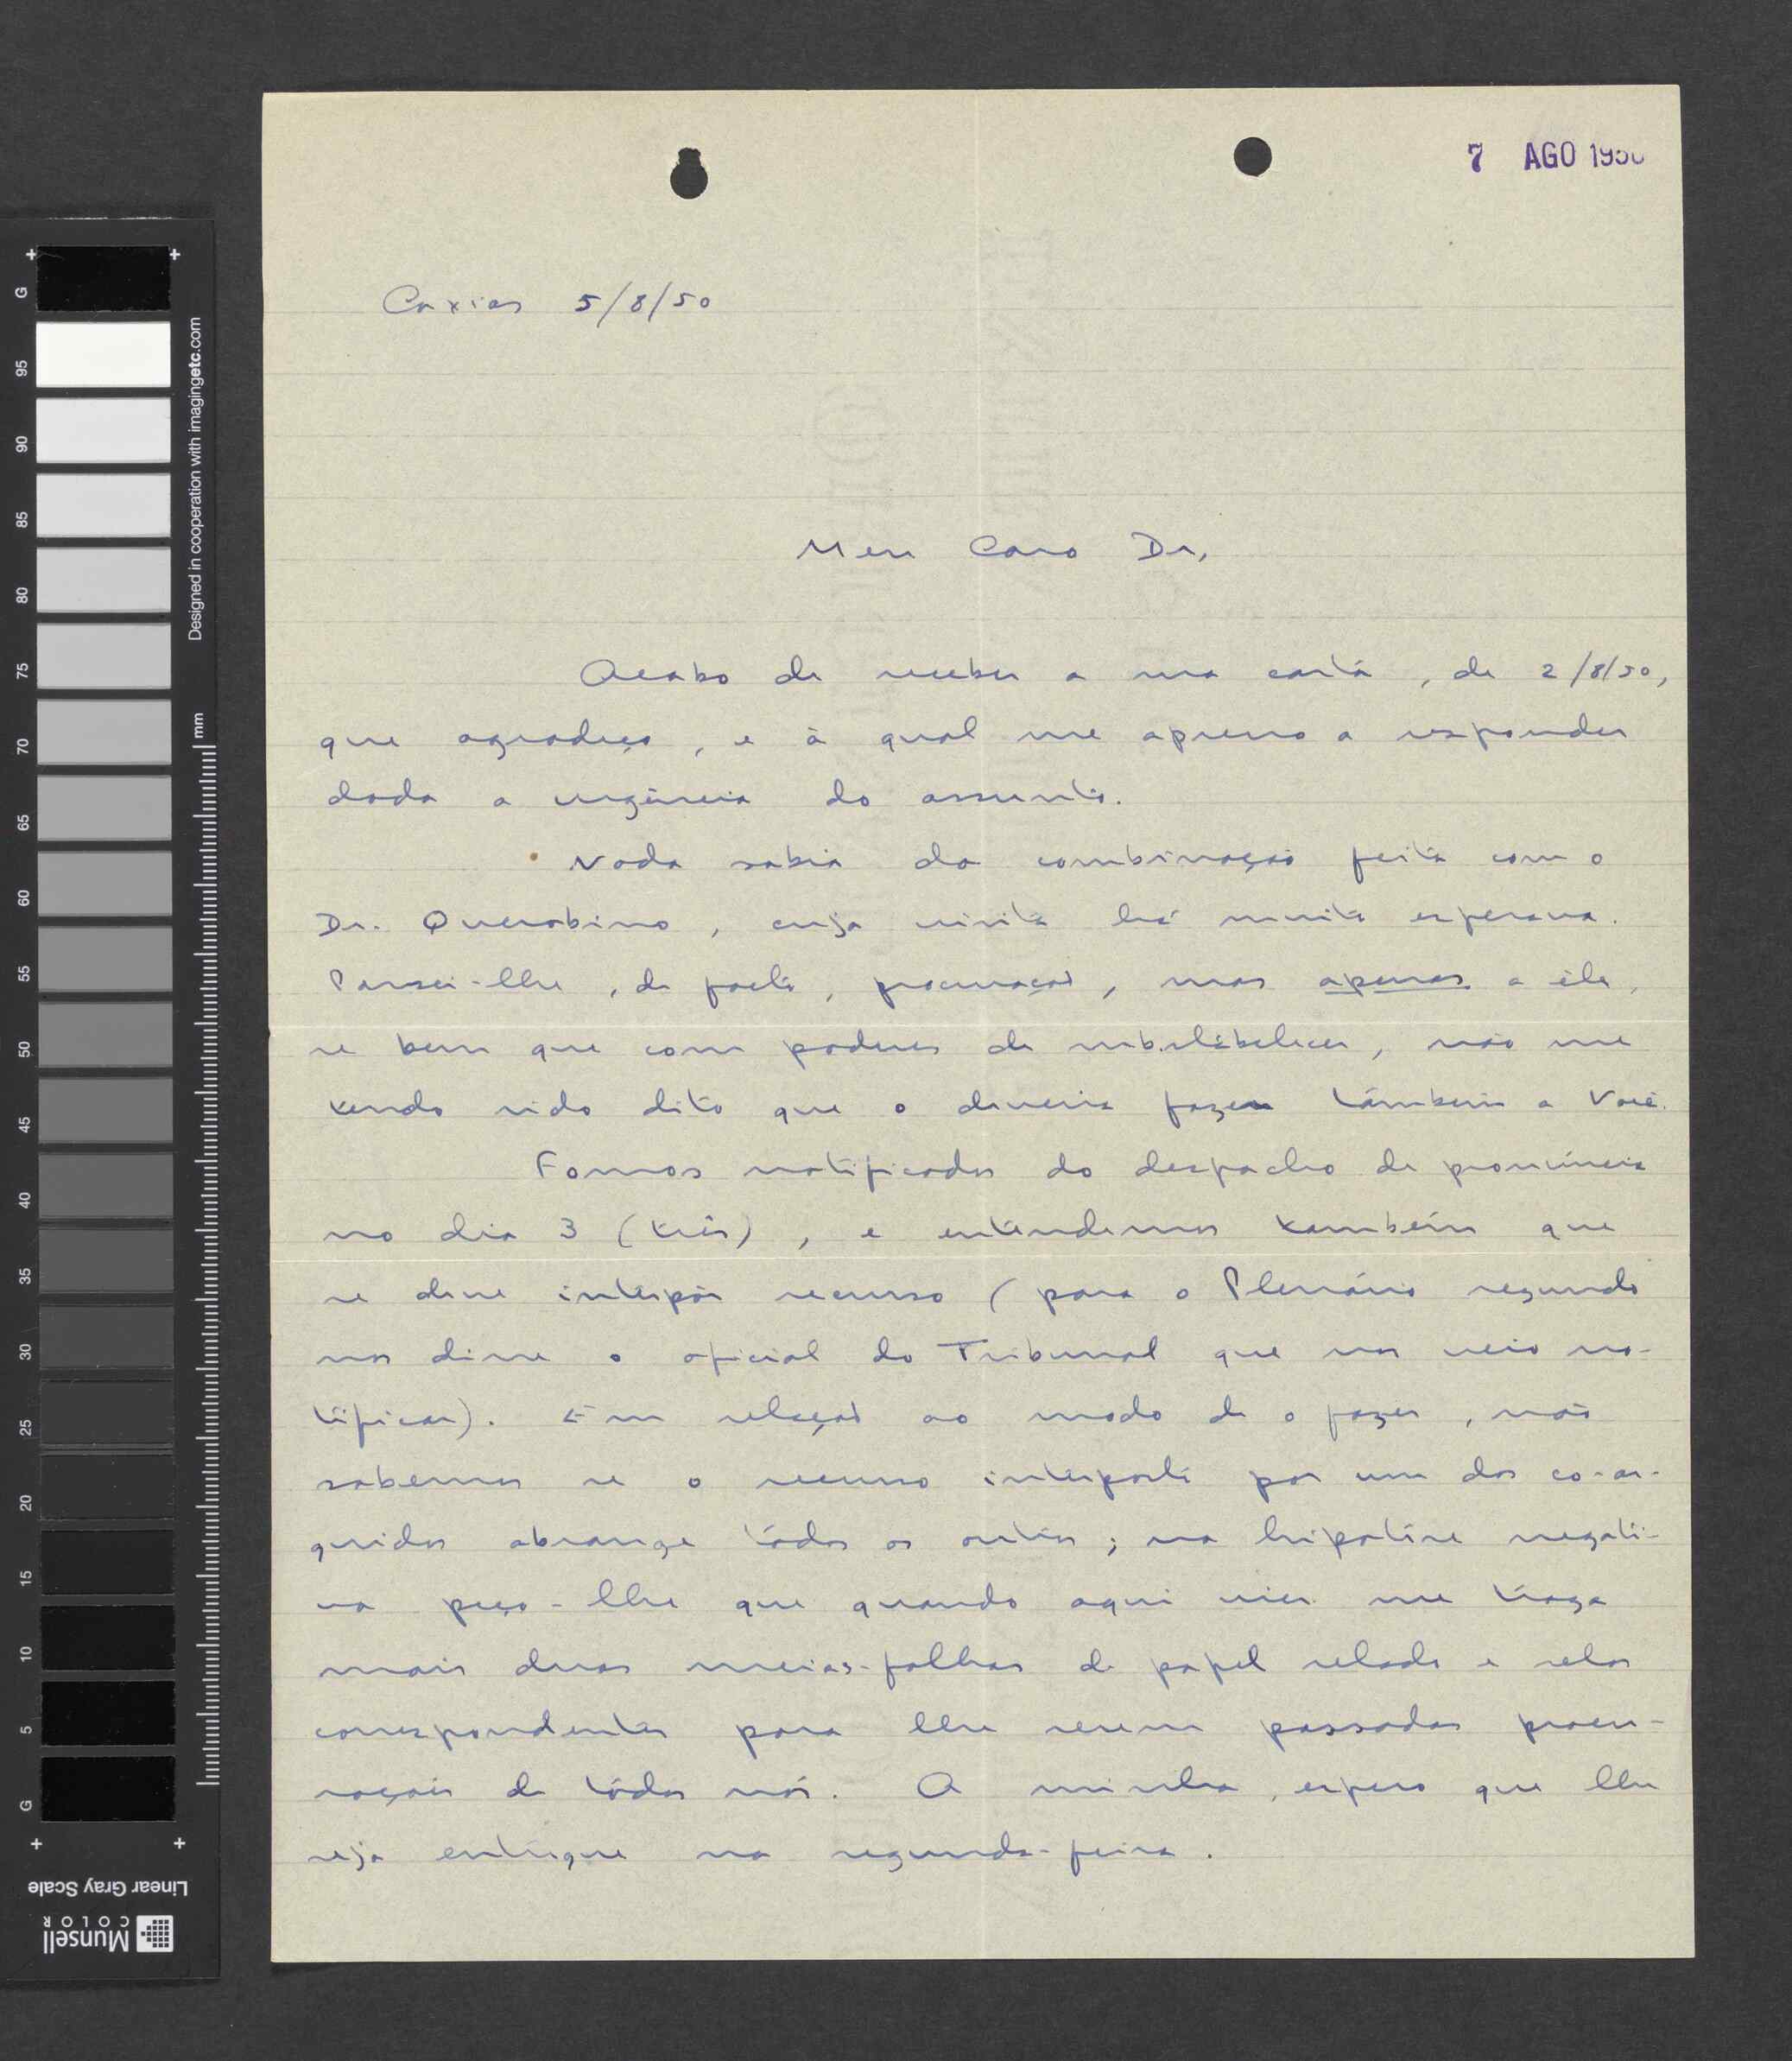 7 AGO 1950
Caxias 5/8/50
Meu Caro Dr,
Acabo de receber a sua carta, de 2/8/50,
que agradeço, e à qual me apresso a responder
dada a urgência do assunto.
Nada sabia da combinação feita com o
Dr. Querobino, cuja visita há muito esperava.
Passei-lhe, de facto, procuração, mas apenas a êle,
se bem que com poderes de substabelecer, não me
tendo sido dito que o deveria fazer tâmbem a Você.
Fomos notificados do despacho de pronúncia
no dia 3 (três), e entendemos também que
se deve interpôr recurso (para o Plenário segundo
nos disse o oficial do Tribunal que nos veio no-
tificar). Em relação ao modo de o fazer, não
sabemos se o recurso interposto por um dos co-ar-
guidos abrange tôdos os outros; na hipotése negati-
va peço-lhe que quando aqui vier me traga
mais duas meias-folhas de papel selado e selos
correspondentes para lhe serem passadas procu-
rações de tôdos nós. A minha, espero que lhe
seja entregue na segunda-feira.
G 95 90 85 80 75 70 65 60 55 50 45 40 35 30 25 20 15 10 5 G
mm
Designed in cooperation with imagingetc.com
Linear Gray Scale
Munsell
COLOR